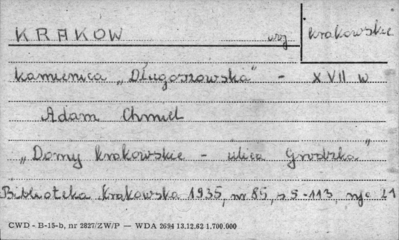 KRAKÓW woj krakowskie
kamienica „Długoszowska" - XVII w
Adam Chmiel
„Domy krakowskie - ulica Grodzka"
Biblioteka Krakowska 1935, nr 85, s 5-113, ryc 21
CWD - B-15-b, nr 2827/ZW/P — WDA 2694 13.12.62 1.700.000